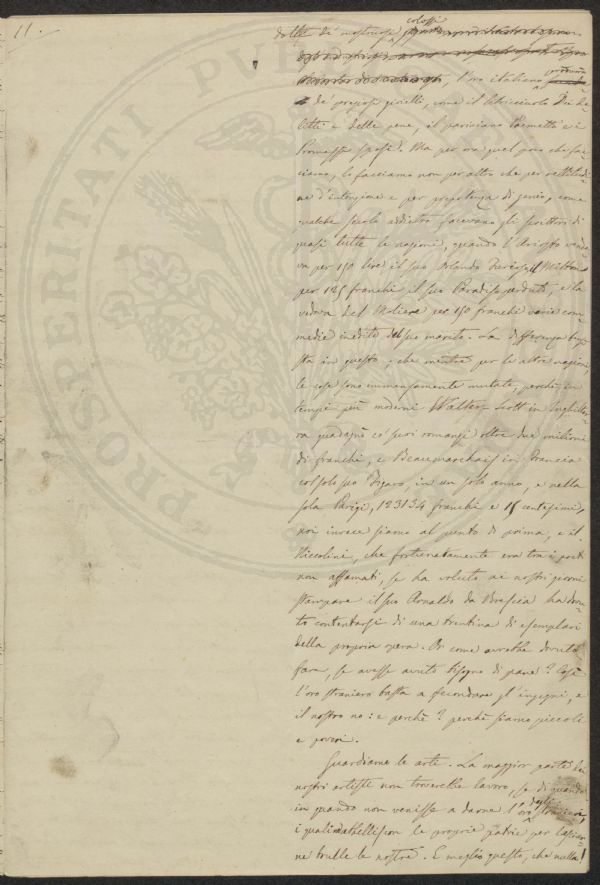 11.
dotte de' mostruosi colossi
l'oro italiano
de' preziosi gioielli, come il libricciuolo Dei de-
litti e delle pene, il pariniano Poemetto e i
Promessi Sposi. Ma per ora quel poco che fac-
ciamo, lo facciamo non per altro che per rettitudi-
ne d'intenzione e per prepotenza di genio, come
qualche secolo addietro facevano gli scrittori di
quasi tutte le nazioni, quando l'Ariosto vende-
va per 150 lire il suo Orlando Furioso, il Milton
per 125 franchi il suo Paradiso perduto, e la
vedova del Moliere per 150 franchi varie com-
medie inedite del suo marito. La differenza
sta in questo, che mentre per le altre nazioni,
le cose sono immensamente mutate, perchè in
tempi più moderni Walter Scott in Inghilter-
ra guadagnò co' suoi romanzi oltre due milioni
di franchi, e Beaumarchais in Francia
col solo suo Figaro, in un solo anno, e nella
sola Parigi, 123134 franchi e 15 centesimi,
noi invece siamo al punto di prima, e il
Niccolini, che fortunatamente era tra i poeti
non affamati, se ha voluto ai nostri giorni
stampare il suo Arnaldo da Brescia ha dovu-
to contentarsi di una trentina di esemplari
della propria opera. Or come avrebbe dovuto
fare, se avesse avuto bisogno di pane? Così
l'oro straniero basta a fecondare gl'ingegni, e
il nostro no: e perchè? perchè siamo piccoli
e poveri.
Guardiamo le arti. La maggior parte dei
nostri artisti non troverebbe lavoro, se di quando
in quando non venisse a darne l'oro degli stranieri,
i quali abbelliscon le proprie patrie per lasciar-
ne brulle le nostre. E meglio questo, che nulla!
PROSPERITATI PUBLICAE